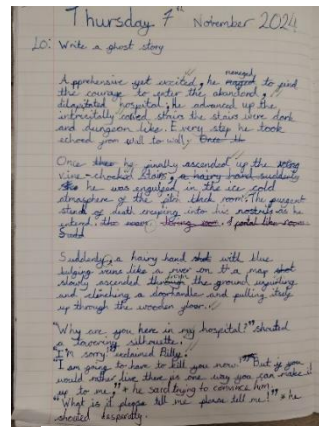 Thursday 7th November 2024
LO: Write a ghost story
Apprehensive yet excited, he managed to find
the courage to enter the abandoned,
dilapitated hospital; he advanced up the
intrecitally coiled stairs the stairs were dark
and dungeon like. Every step he took
echoed from wall to wall. Once th
Once he finally ascended up the
vine-chocked stairs, a hairy hand suddenly
he was engulfed in the ice cold
atmosphere of the pitch black room. The pungent
stench of death creeping into his nostrils as he
enterd. the room.
Sudd
Suddenly, a hairy hand shot with blue
bulging veins like a river on a map shot
slowly ascended through the ground
and clenching a doorhandle and pulling itsely
up through the wooden floor.
"Why are you here in my hospital?" shouted
a towering silhouette.
"I'm sorry" exclaimed Billy.
"I am going to have to kill you now." "But if you
would rather live there is one way you can make it
up to me," he said trying to convince him.
"What is it please tell me please tell me!" he
shouted desperatly.